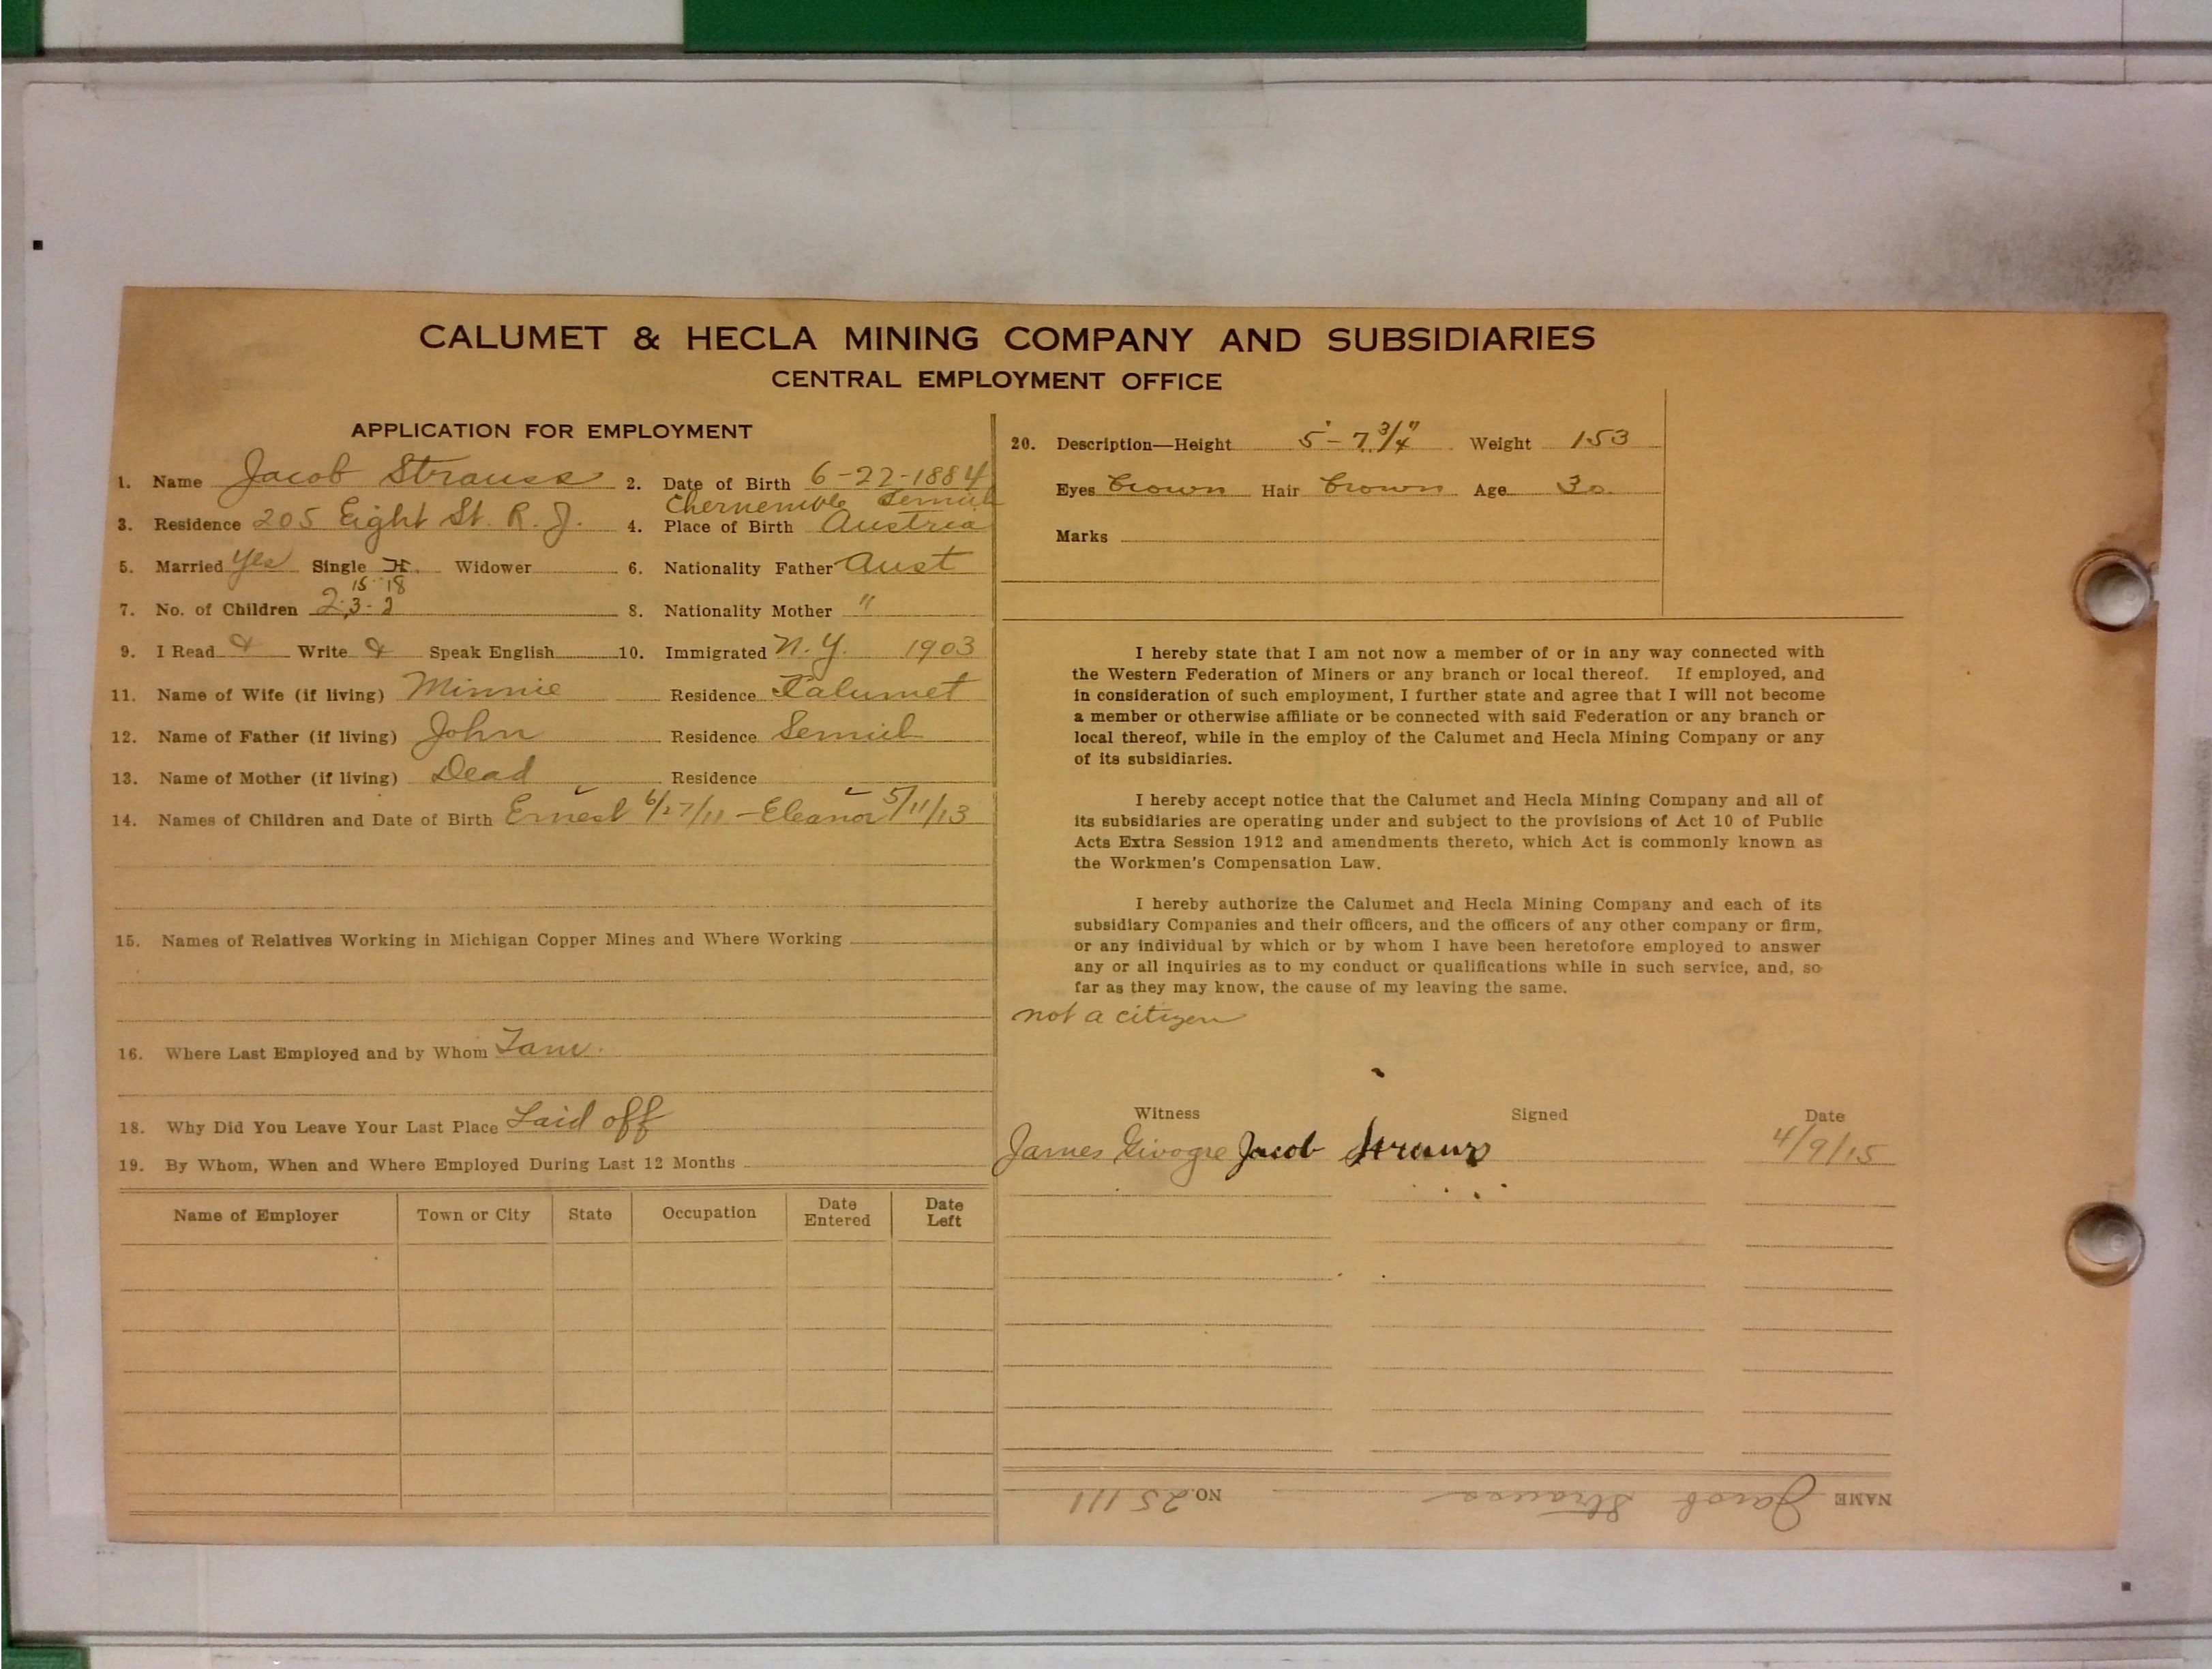 CALUMET & HECLA MINING COMPANY AND SUBSIDIARIES
CENTRAL EMPLOYMENT OFFICE
APPLICATION FOR EMPLOYMENT
1. Name Jacob Strauss 2. Date of Birth 6-22-1884
Semiel
3. Residence 205 Eight St. R. J. 4. Place of Birth Austria
5. Married Yes Single Widower 6. Nationality Father Aust
15 18
7. No. of Children 2 3-2 8. Nationality Mother "
9. I Read & Write & Speak English 10. Immigrated N.Y. 1903
11. Name of Wife (if living) Minnie Residence Calumet
12. Name of Father (if living) John Residence Semiel
13. Name of Mother (if living) Dead Residence
14. Names of Children and Date of Birth Ernest 6/27/11 - Eleanor 5/11/13
15. Names of Relatives Working in Michigan Copper Mines and Where Working
16. Where Last Employed and by Whom Tam.
18. Why Did You Leave Your Last Place Laid off
19. By Whom, When and Where Employed During Last 12 Months
Name of Employer Town or City State Occupation Date Entered Date Left
20. Description—Height 5'-7 3/4" Weight 153
Eyes Brown Hair Brown Age 30
Marks
I hereby state that I am not now a member of or in any way connected with
the Western Federation of Miners or any branch or local thereof. If employed, and
in consideration of such employment, I further state and agree that I will not become
a member or otherwise affiliate or be connected with said Federation or any branch or
local thereof, while in the employ of the Calumet and Hecla Mining Company or any
of its subsidiaries.
I hereby accept notice that the Calumet and Hecla Mining Company and all of
its subsidiaries are operating under and subject to the provisions of Act 10 of Public
Acts Extra Session 1912 and amendments thereto, which Act is commonly known as
the Workmen's Compensation Law.
I hereby authorize the Calumet and Hecla Mining Company and each of its
subsidiary Companies and their officers, and the officers of any other company or firm,
or any individual by which or by whom I have been heretofore employed to answer
any or all inquiries as to my conduct or qualifications while in such service, and, so
far as they may know, the cause of my leaving the same.
not a citizen
Witness Signed Date
James Givogre Jacob Strauss 4/9/15
NAME Jacob Strauss NO. 25111